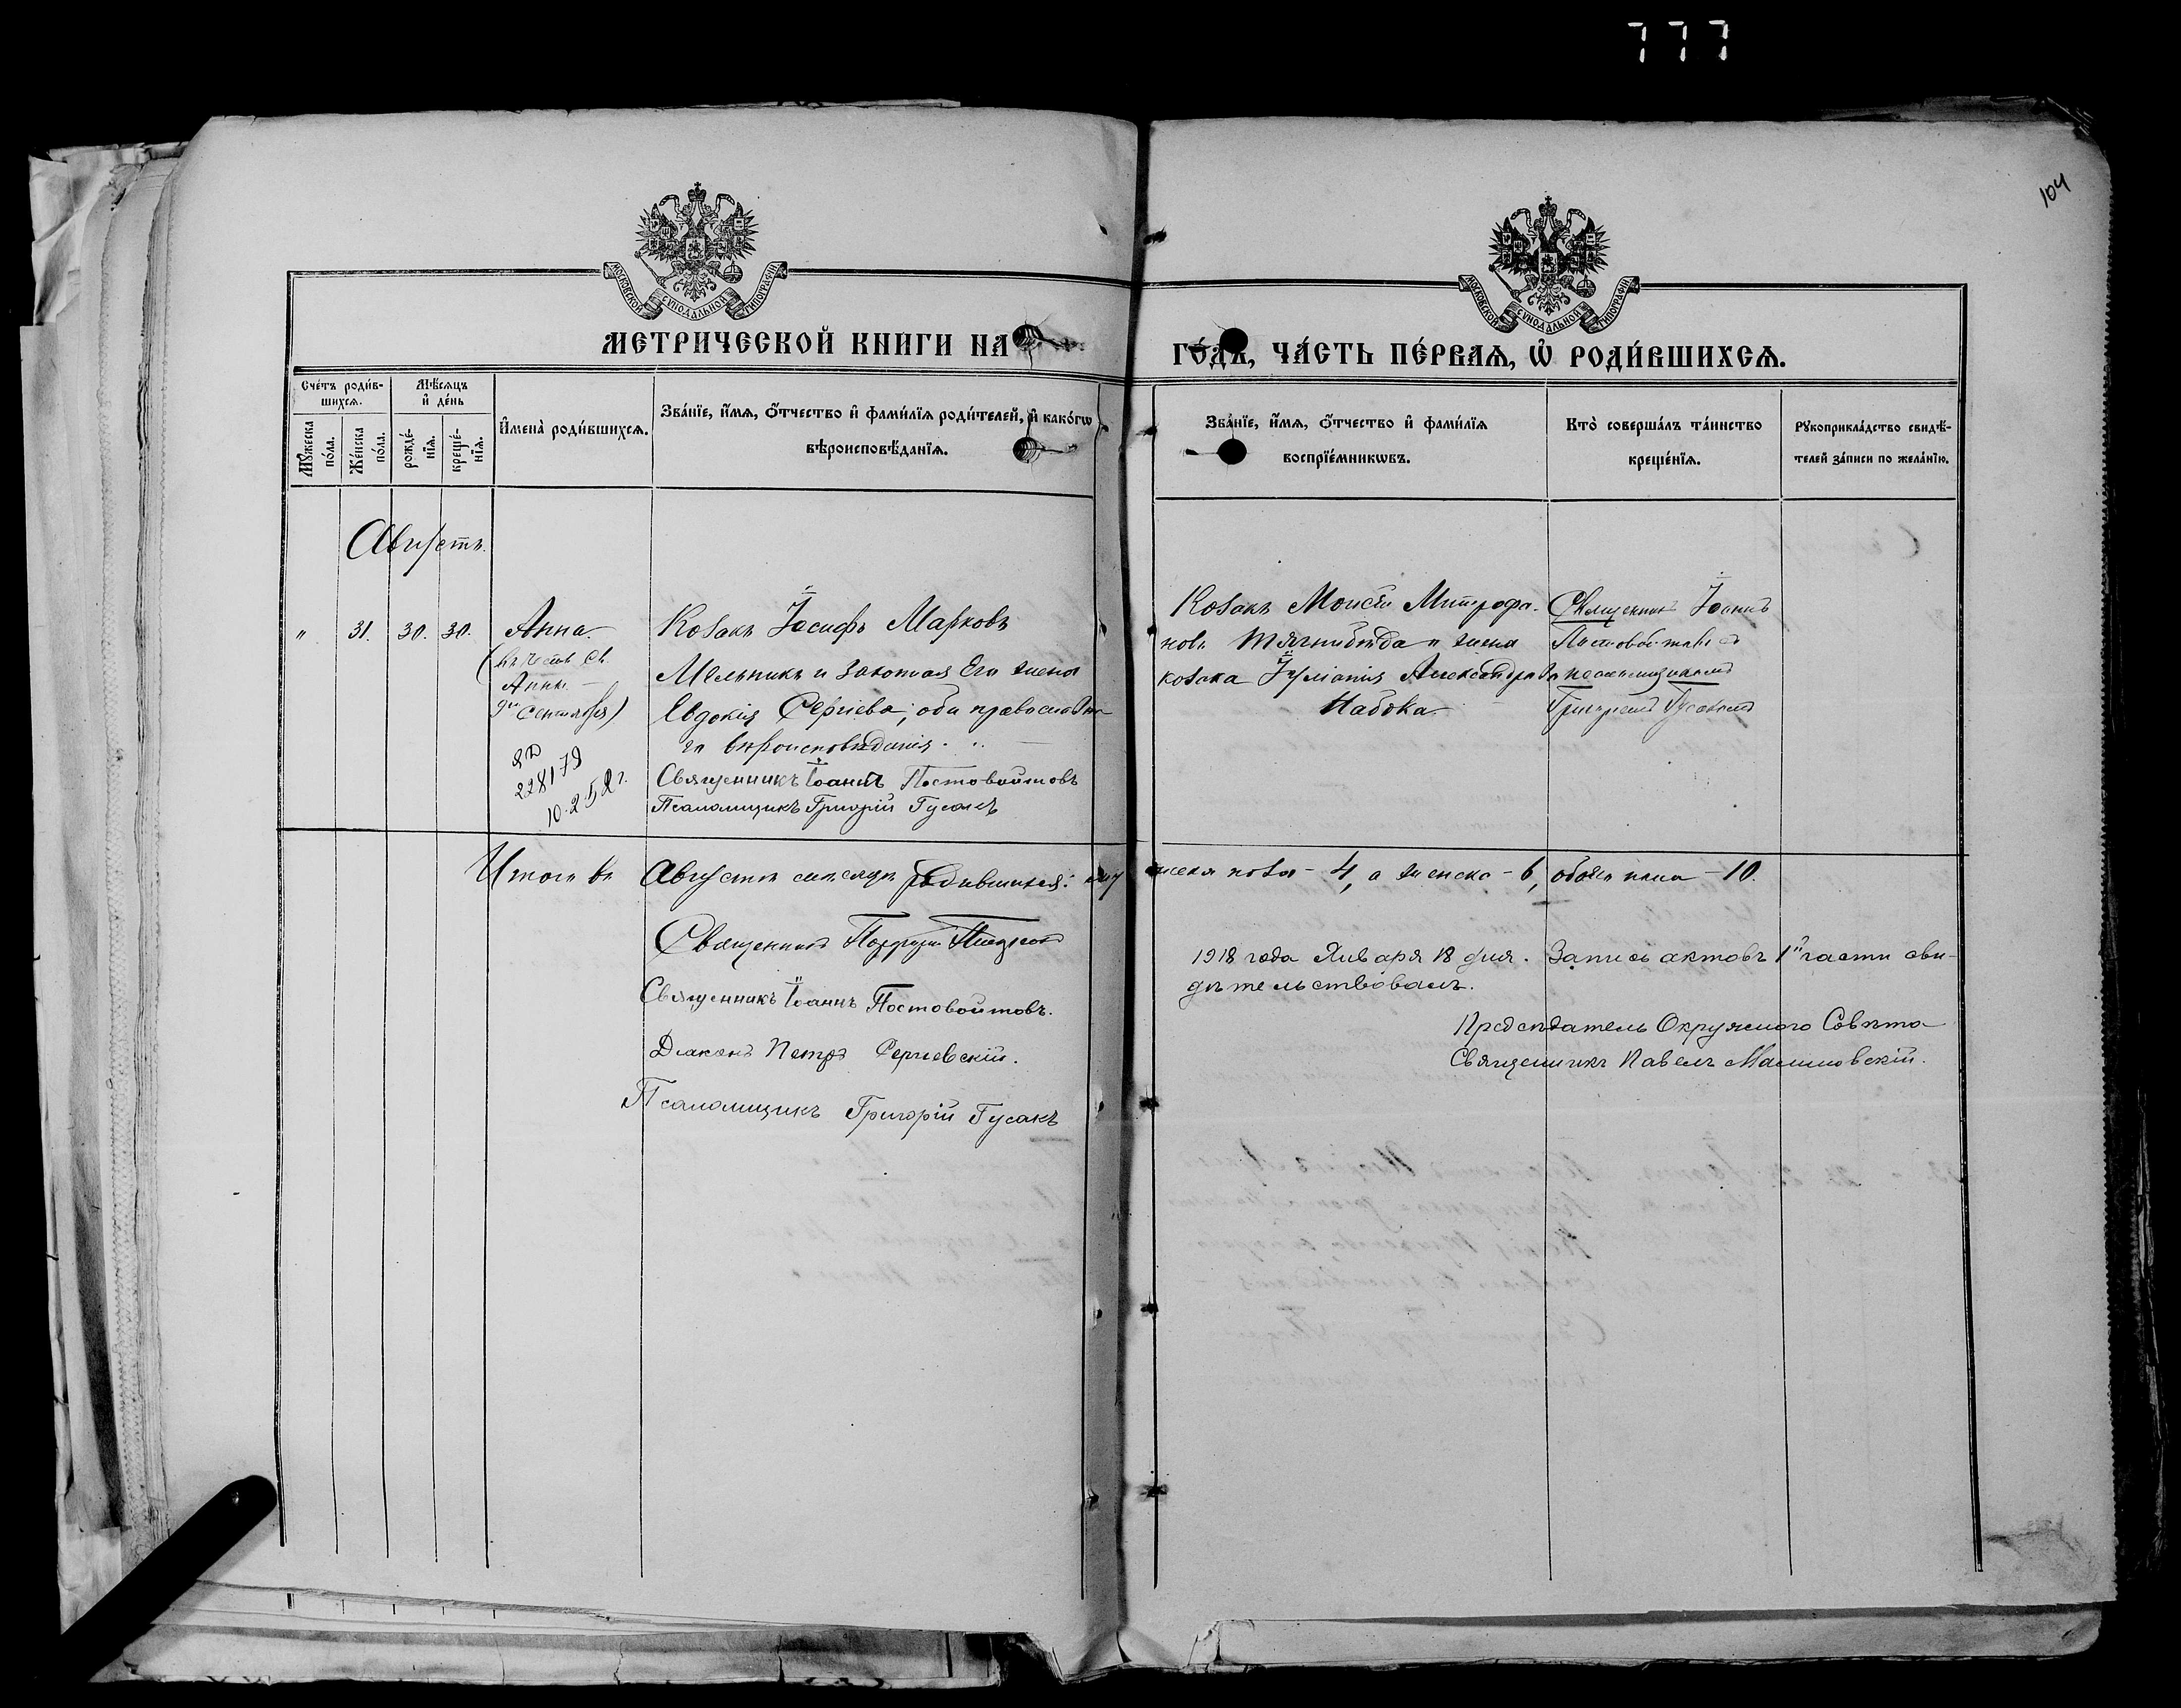 777
104
МОСКОВСКОЙ СѴНОДАЛЬНОЙ ТИПОГРАФІИ
МОСКОВСКОЙ СѴНОДАЛЬНОЙ ТИПОГРАФІИ
МЕТРИЧЕСКОЙ КНИГИ НА
ГО́ДЪ, ЧА́СТЬ ПЕ́РВАѦ, Ѡ҆ РОДИ́ВШИХСѦ.
Сче́тъ роди́в-
шихсѧ.
Мѣ́сѧцъ
и҆ де́нь
Мꙋ́жеска
по́ла.
Же́нска
по́ла.
рожде́-
нїѧ.
креще́-
нїѧ.
И҆мена̀ роди́вшихсѧ.
Зва́нїе, и҆́мѧ, ѻ҆́тчество и҆ фами́лїѧ роди́телей, и҆ како́гѡ
вѣроисповѣ́данїѧ.
Зва́нїе, и҆́мѧ, ѻ҆́тчество и҆ фами́лїѧ
воспрїе́мникѡвъ.
Кто̀ соверша́лъ та́инство
креще́нїѧ.
Рꙋкоприкла́дство свидѣ́-
телей за́писи по жела́нїю.
Августъ.
" 31. 30. 30.
Анна.
(въ честь св.
Анны
9го Сентября)
228179
10.2.52г.
Козакъ Іосифъ Марковъ
Мельникъ и законная Его жена
Евдокія Сергіева; оба православна
го вѣроисповѣданія.
Священникъ Іоаннъ Постовойтовъ
Псаломщикъ Григорій Гусакъ
Козакъ Моисей Митрофа-
новъ Тягнибѣда и жена
козака Іуліанія Александрова
Набока.
Священникъ Іоаннъ
Постовойтовъ съ
псаломщикомъ
Григоріемъ Гусакомъ
Итого въ Августѣ мѣсяцѣ родившихся: мужеска пола - 4, а женска - 6, обоего пола - 10.
Священникъ
Священникъ Іоаннъ Постовойтовъ.
Діаконъ Петръ Сергіевскій.
Псаломщикъ Григорій Гусакъ
1918 года Января 18 дня. Запись актовъ 1й части сви-
дѣтельствовалъ.
Предсѣдатель Окружного Совѣта
Священникъ Павелъ Малиновскій.